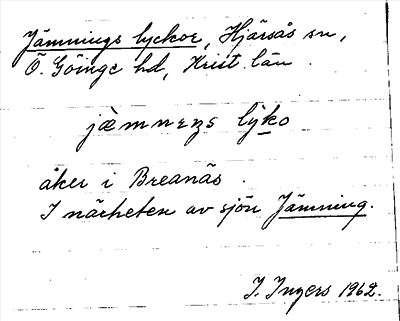 Jämnings lyckor, Hjärsås sn,
Ö. Göinge hd, Krist. län.
jæ̀mnɛŋs lýko
åker i Breanäs.
I närheten av sjön Jämning.
I. Ingers 1962.